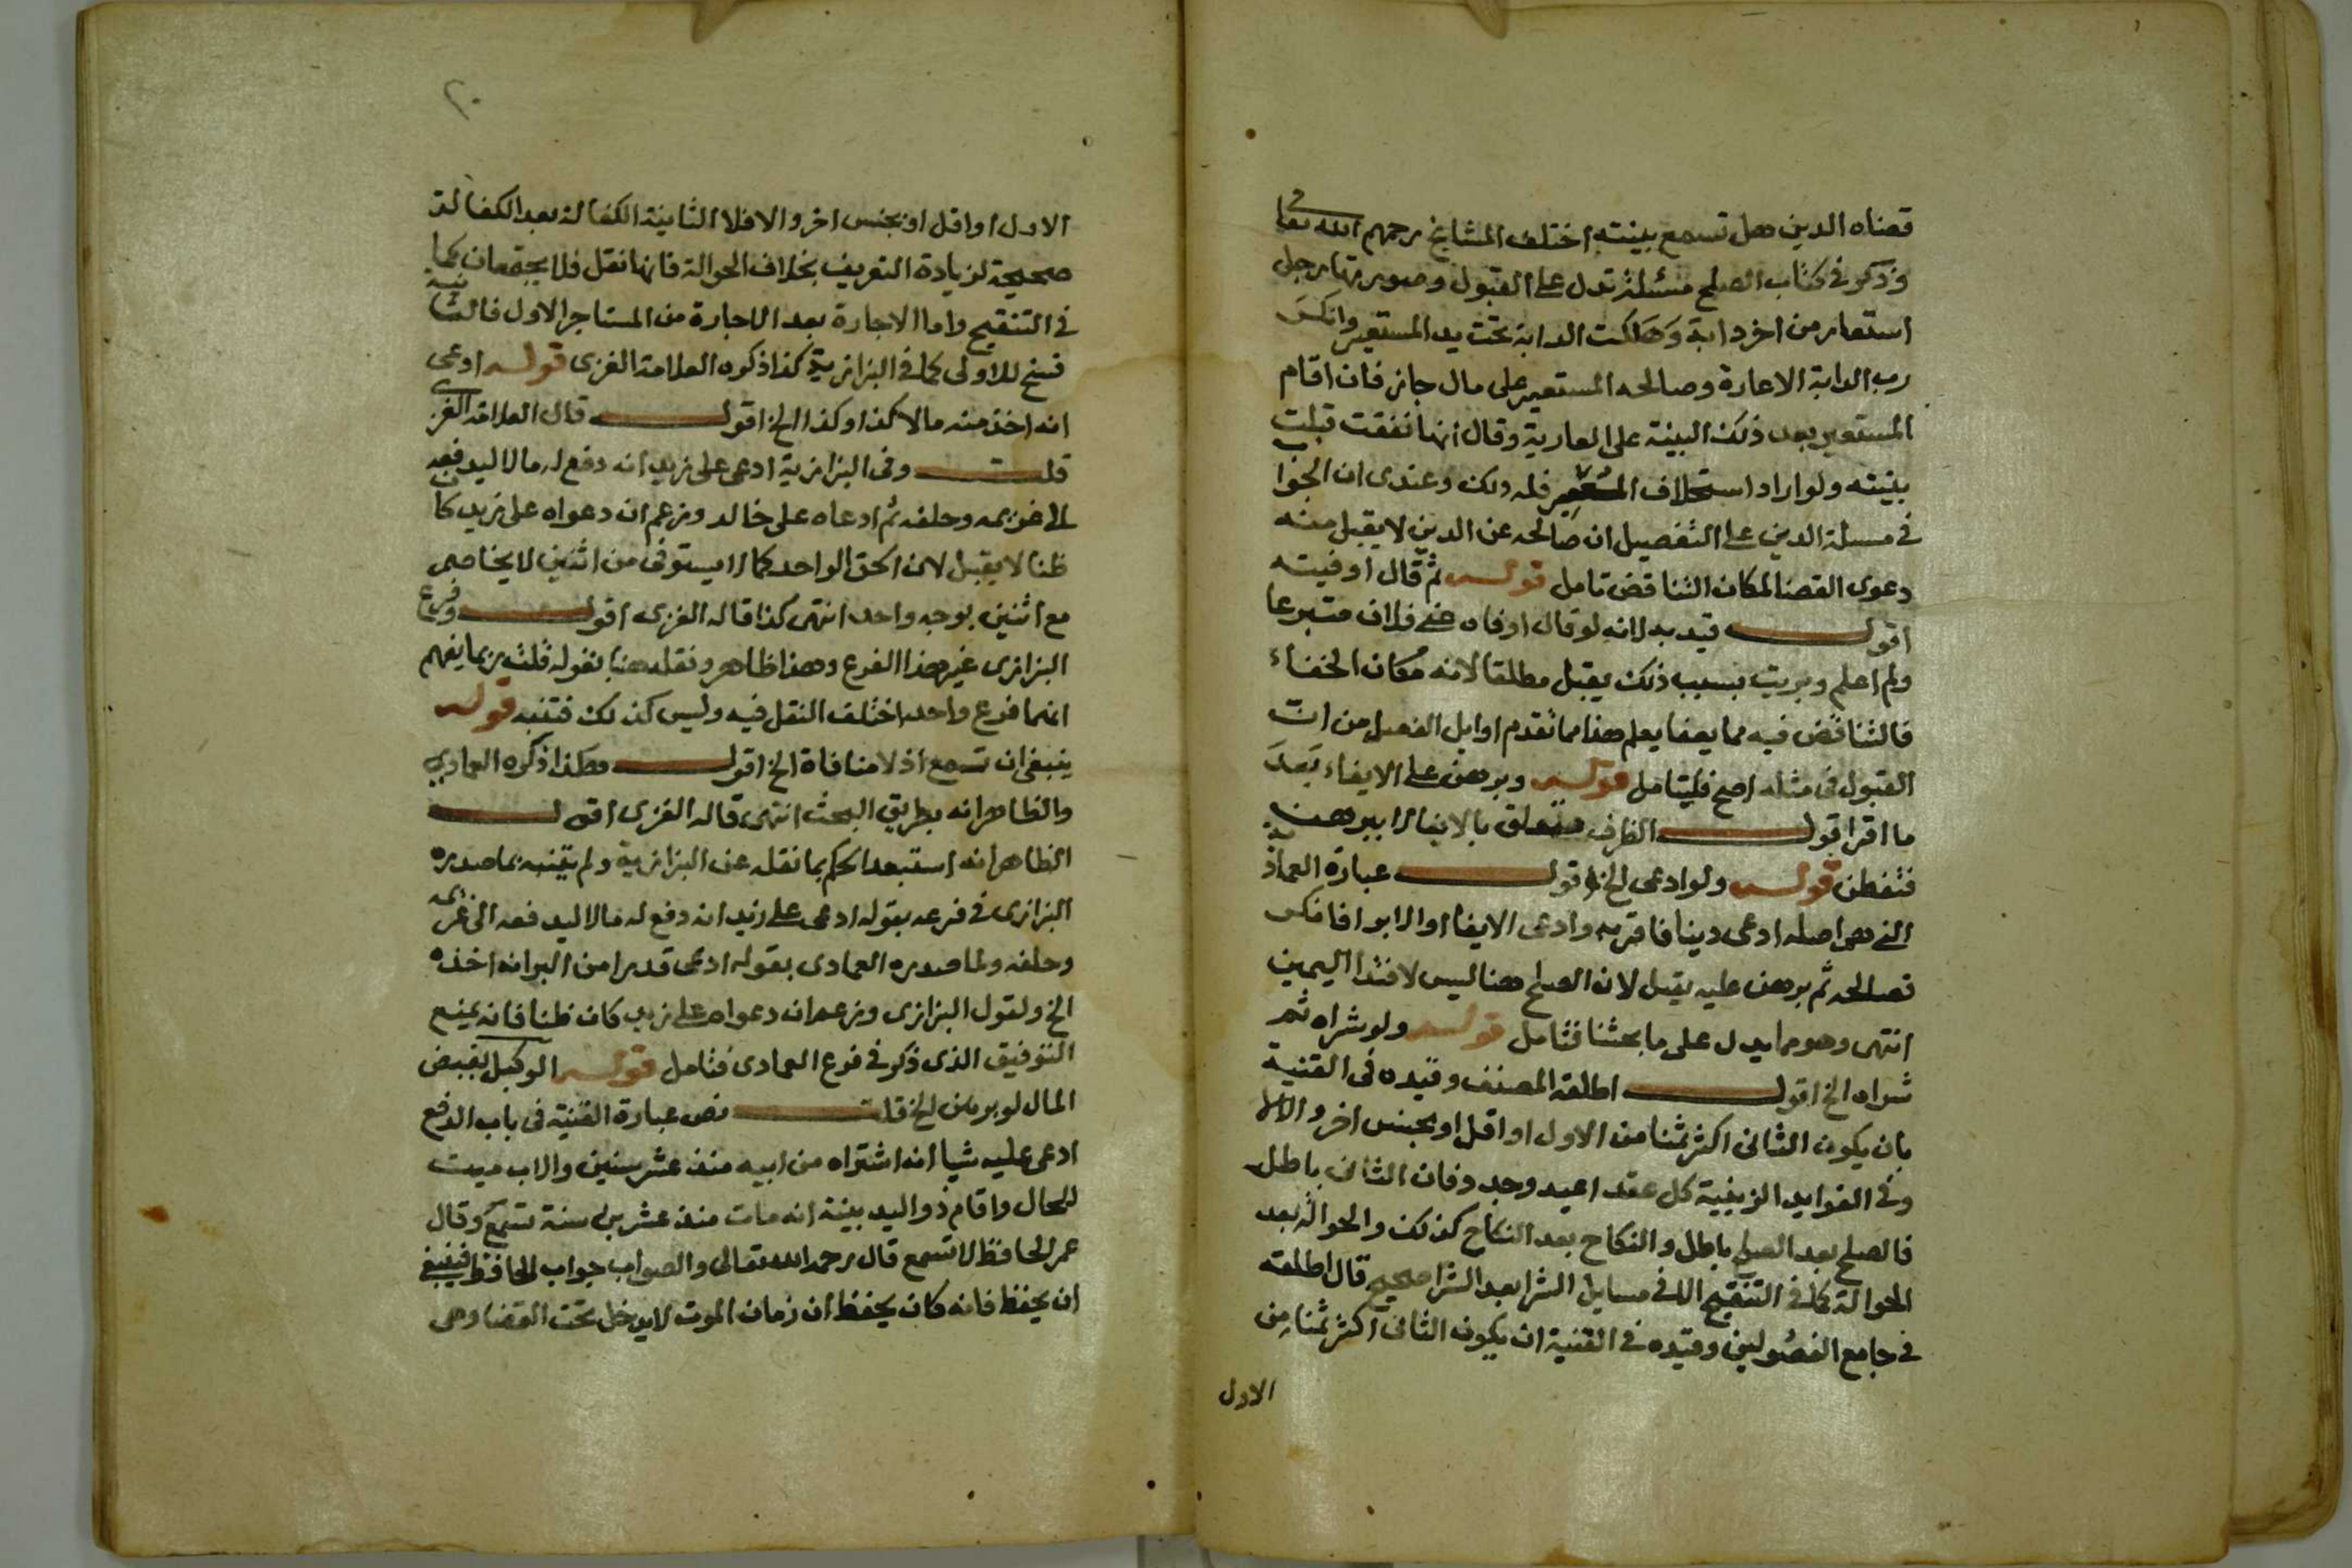 قضاه الدين هل تسمع بينته اختلف المشايخ رحمهم الله تعالى
وذكر في كتاب الصلح مسئلة تدل على القبول وصورتها رجل
استعار من اخر دابة وهلكت الدابة تحت يد المستعير وانكر
رب الدابة الاعارة وصالحه المستعير على مال جاز فان اقام
المستعير بعد ذلك البينة على العارية وقال انها نفقت قبلت
بينته ولو اراد استحلاف المستعير فله ذلك وعندى ان الجوا
في مسلة الدين على التفصيل ان صالحه عن الدين لا يقبل منه
دعوى القضا لمكان التناقض تامل قوله ثم قال اوفيته
اقول قيد به لانه لو قال اوفاه عنى فلان متبرعا
ولم اعلم وبريت بسبب ذلك يقبل مطلقا لانه مكان الخفاء
فالتناقض فيه مما يعفا يعلم هذا مما تقدم اوايل الفصل من ان
القبول في مثله اصح فليتامل قوله وبرهن على الايفاء بعد
ما اقر اقول الظرف متعلق بالايفا لا ببرهن
فتفطن قوله ولو ادعى الخ اقول عبارة العمادية
التي هي اصله ادعى دينا فاقر به وادعى الايفا او الابرا فانكر
فصالحه ثم برهن عليه يقبل لان الصلح هنا ليس لافتدا اليمين
انتهى وهو مما يدل على ما بحثنا فتامل قوله ولو شراه ثم
شراه الخ اقول اطلقه المصنف وقيده في القنية
بان يكون الثانى اكثر ثمنا من الاول او اقل او بجنس اخر والا لا
وفي الفوايد الزينية كل عقد اعيد وجدد فان الثانى باطل
فالصلح بعد الصلح باطل والنكاح بعد النكاح كذلك والحوالة بعد
الحوالة كما في التنقيح الا في مسايل الشرا بعد الشرا صحيح قال اطلقه
في جامع الفصولين وقيده في القنية ان يكون الثانى اكثر ثمنا من
الاول
٢٠
الاول او اقل او بجنس اخر والا فلا الثانية الكفالة بعد الكفالة
صحيحة لزيادة التعريف بخلاف الحوالة فانها نقل فلا يجتمعان كما
في التنقيح واما الاجارة بعد الاجارة من المستاجر الاول فالثانية
فسخ للاولى كما في البزازية كذا ذكره العلامة الغزى قوله ادعى
انه اخذ منه مالا كذا وكذا الخ اقول قال العلامة الغزى
قلت وفي البزازية ادعى على زيد انه دفع له مالا ليدفعه
الى غريمه وحلفه ثم ادعاه على خالد وزعم ان دعواه على زيد كان
ظنا لا يقبل لان الحق الواحد كما لا يستوفى من اثنين لا يخاصم
مع اثنين بوجه واحد انتهى كذا قاله الغزى اقول وفرع
البزازى غير هذا الفرع وهذا ظاهر ونقله هنا بقوله قلت ربما يفهم
انهما فرع واحد اختلف النقل فيه وليس كذلك فتنبه قوله
ينبغى ان تسمع اذ لا منافاة الخ اقول هكذا ذكره العمادى
والظاهر انه بطريق البحث انتهى قاله الغزى اقول
الظاهر انه استبعد الحكم بما نقله عن البزازية ولم يتنبه بما صدره
البزازى في فرعه بقوله ادعى على زيد انه دفع له مالا ليدفعه الى غريمه
وحلفه ولما صدره العمادى بقوله ادعى قدرا من البر انه اخذه
الخ ولقول البزازى وزعم ان دعواه على زيد كان ظنا فانه يمنع
التوفيق الذى ذكر في فرع العمادى فتامل قوله الوكيل بقبض
المال لو برهن الخ قلت نص عبارة القنية في باب الدفع
ادعى عليه شيا انه اشتراه من ابيه منذ عشر سنين والاب ميت
للحال واقام ذو اليد بينة انه مات منذ عشرين سنة تسمع وقال
عمر الحافظ لا تسمع قال رحمه الله تعالى والصواب جواب الحافظ فينبغى
ان يحفظ فانه كان يحفظ ان زمان الموت لا يدخل تحت القضا وهى